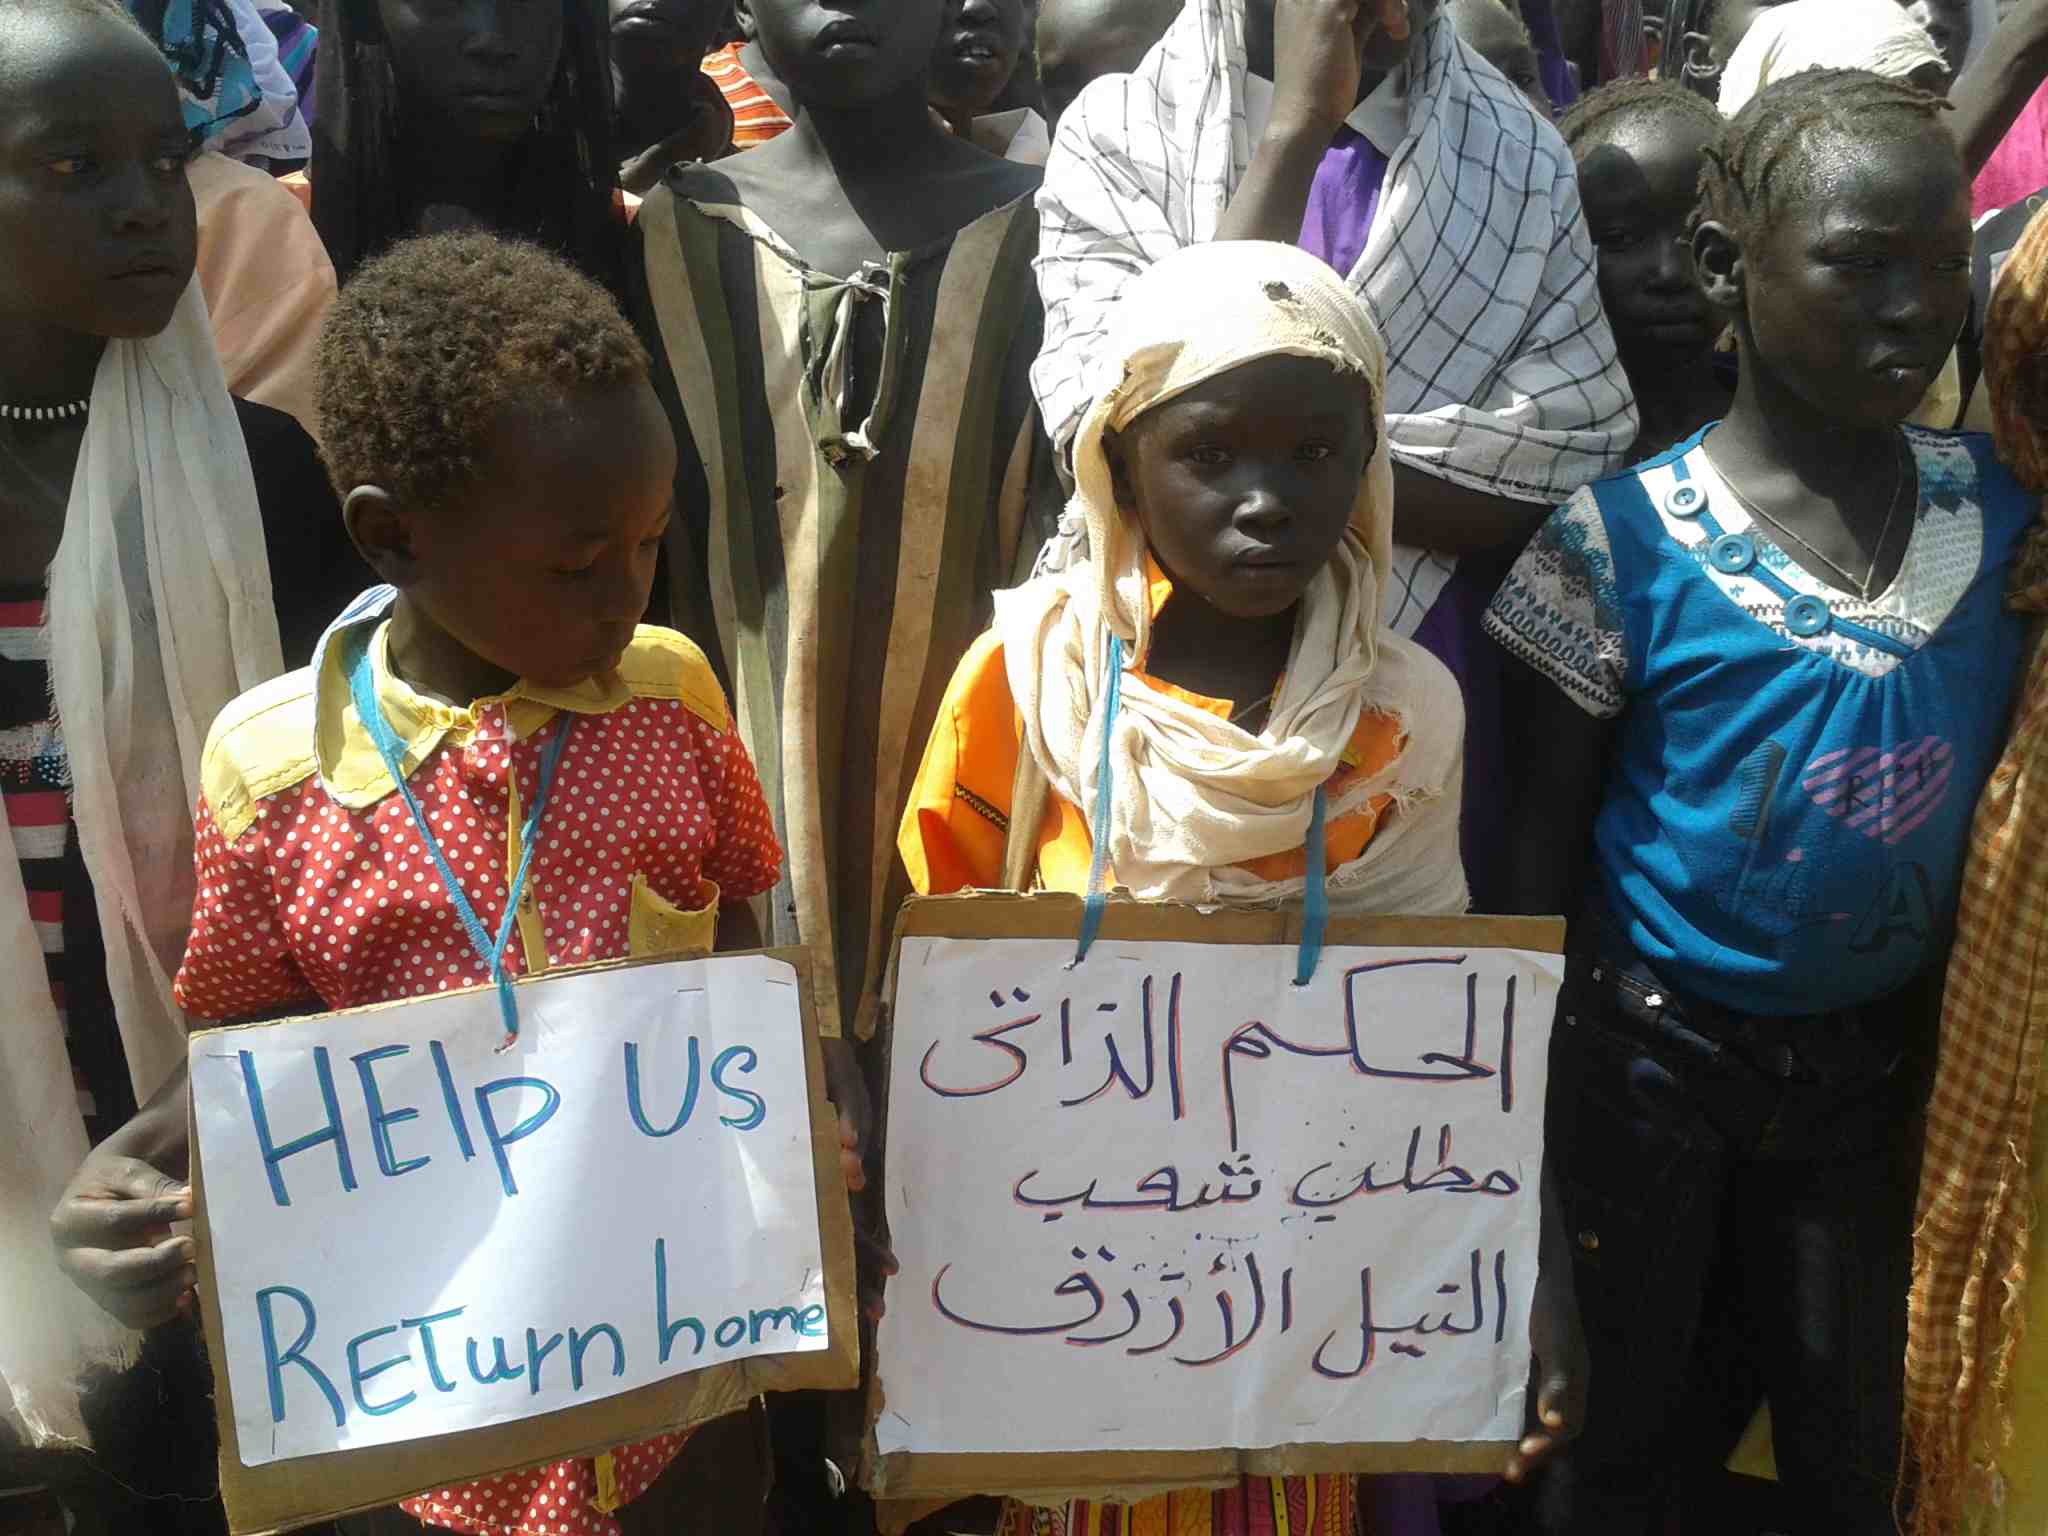 HElp US
RETurn home
الحكم الذاتى
مطلب شعب
النيل الأزرق
I